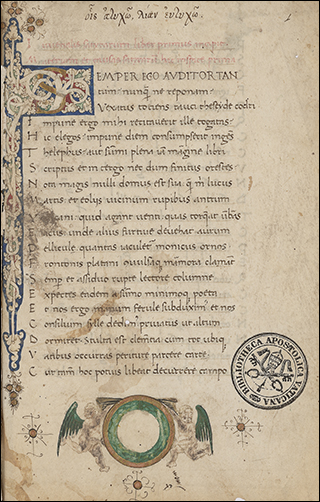 οἷς ἀτυχῶ, λίαν εὐτυχῶ.
SEMPER EGO AVDITOR TAN
tum· nunq̃ ne reponam·
Vexatus totiens rauci theseide codri
Impune ergo mihi recitaverit ille togatas·
Hic elegos· impune diem consumpserit ingẽs
Thelephus· aut summi plena iam margine libri
Scriptus et in tergo nec dum finitus orestes·
Nota magis nulli domus est sua q̃ mihi lucus
Martis· et eolys vicinum rupibus antrum
Vulcani· quid agant venti· quas torqueat umbras
Eacus· unde alius furtive devehat aurum
Pellicule· quantas iaculetur monicus ornos·
Frontonis platani· convulsaq̃ marmora clamant
Semper et assiduo rupte lectore columne·
Expectes eadem a summo minimoq̃ poeta·
Et nos ergo manum ferule subduximus· et nos
Consilium sille dedimus privatus ut altum
Dormiret· stulta est clementia cum tot ubiq̃
Vatibus occurras periture parcere carte·
Cur tamen hoc potius libeat decurrere campo
BIBLIOTHECA APOSTOLICA VATICANA